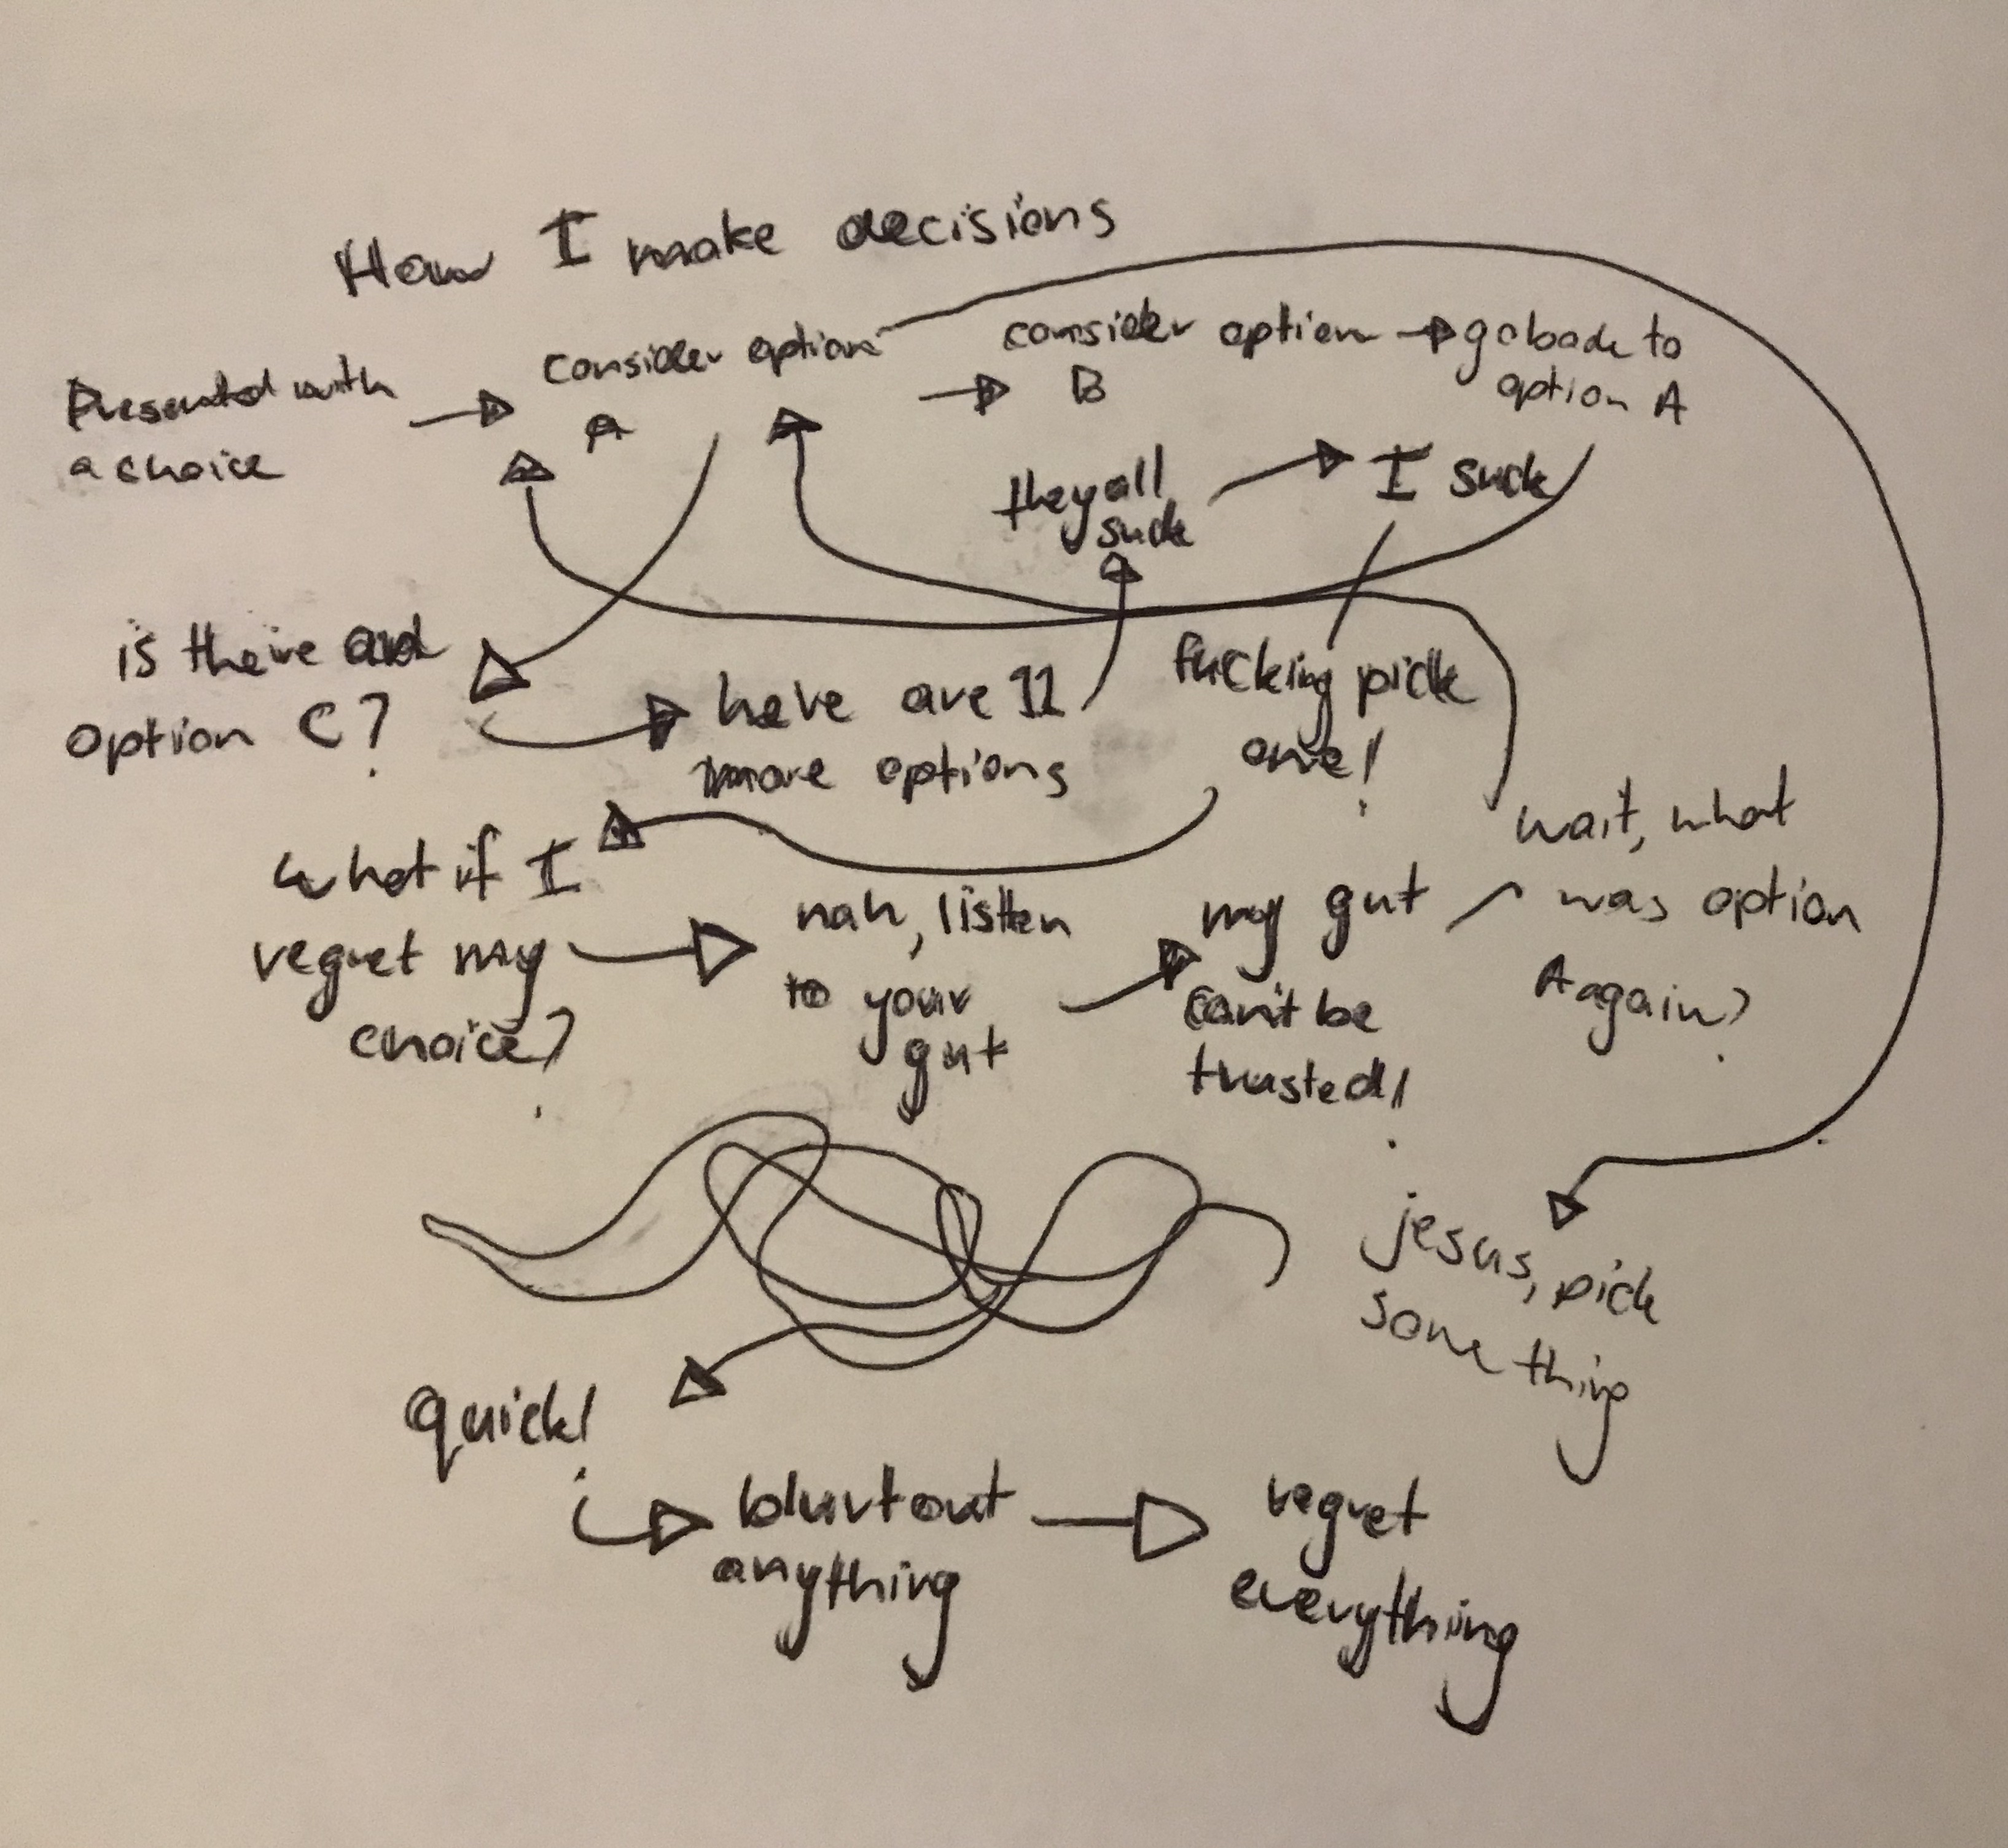 How I make decisions
Presented with
a choice
consider option
A
consider option
B
go back to
option A
they all
suck
I suck
is there and
option C?
here are 11
more options
fucking pick
one!
what if I
regret my
choice?
nah, listen
to your
gut
my gut
can't be
trusted!
wait, what
was option
A again?
jesus, pick
something
quick!
blurt out
anything
regret
everything